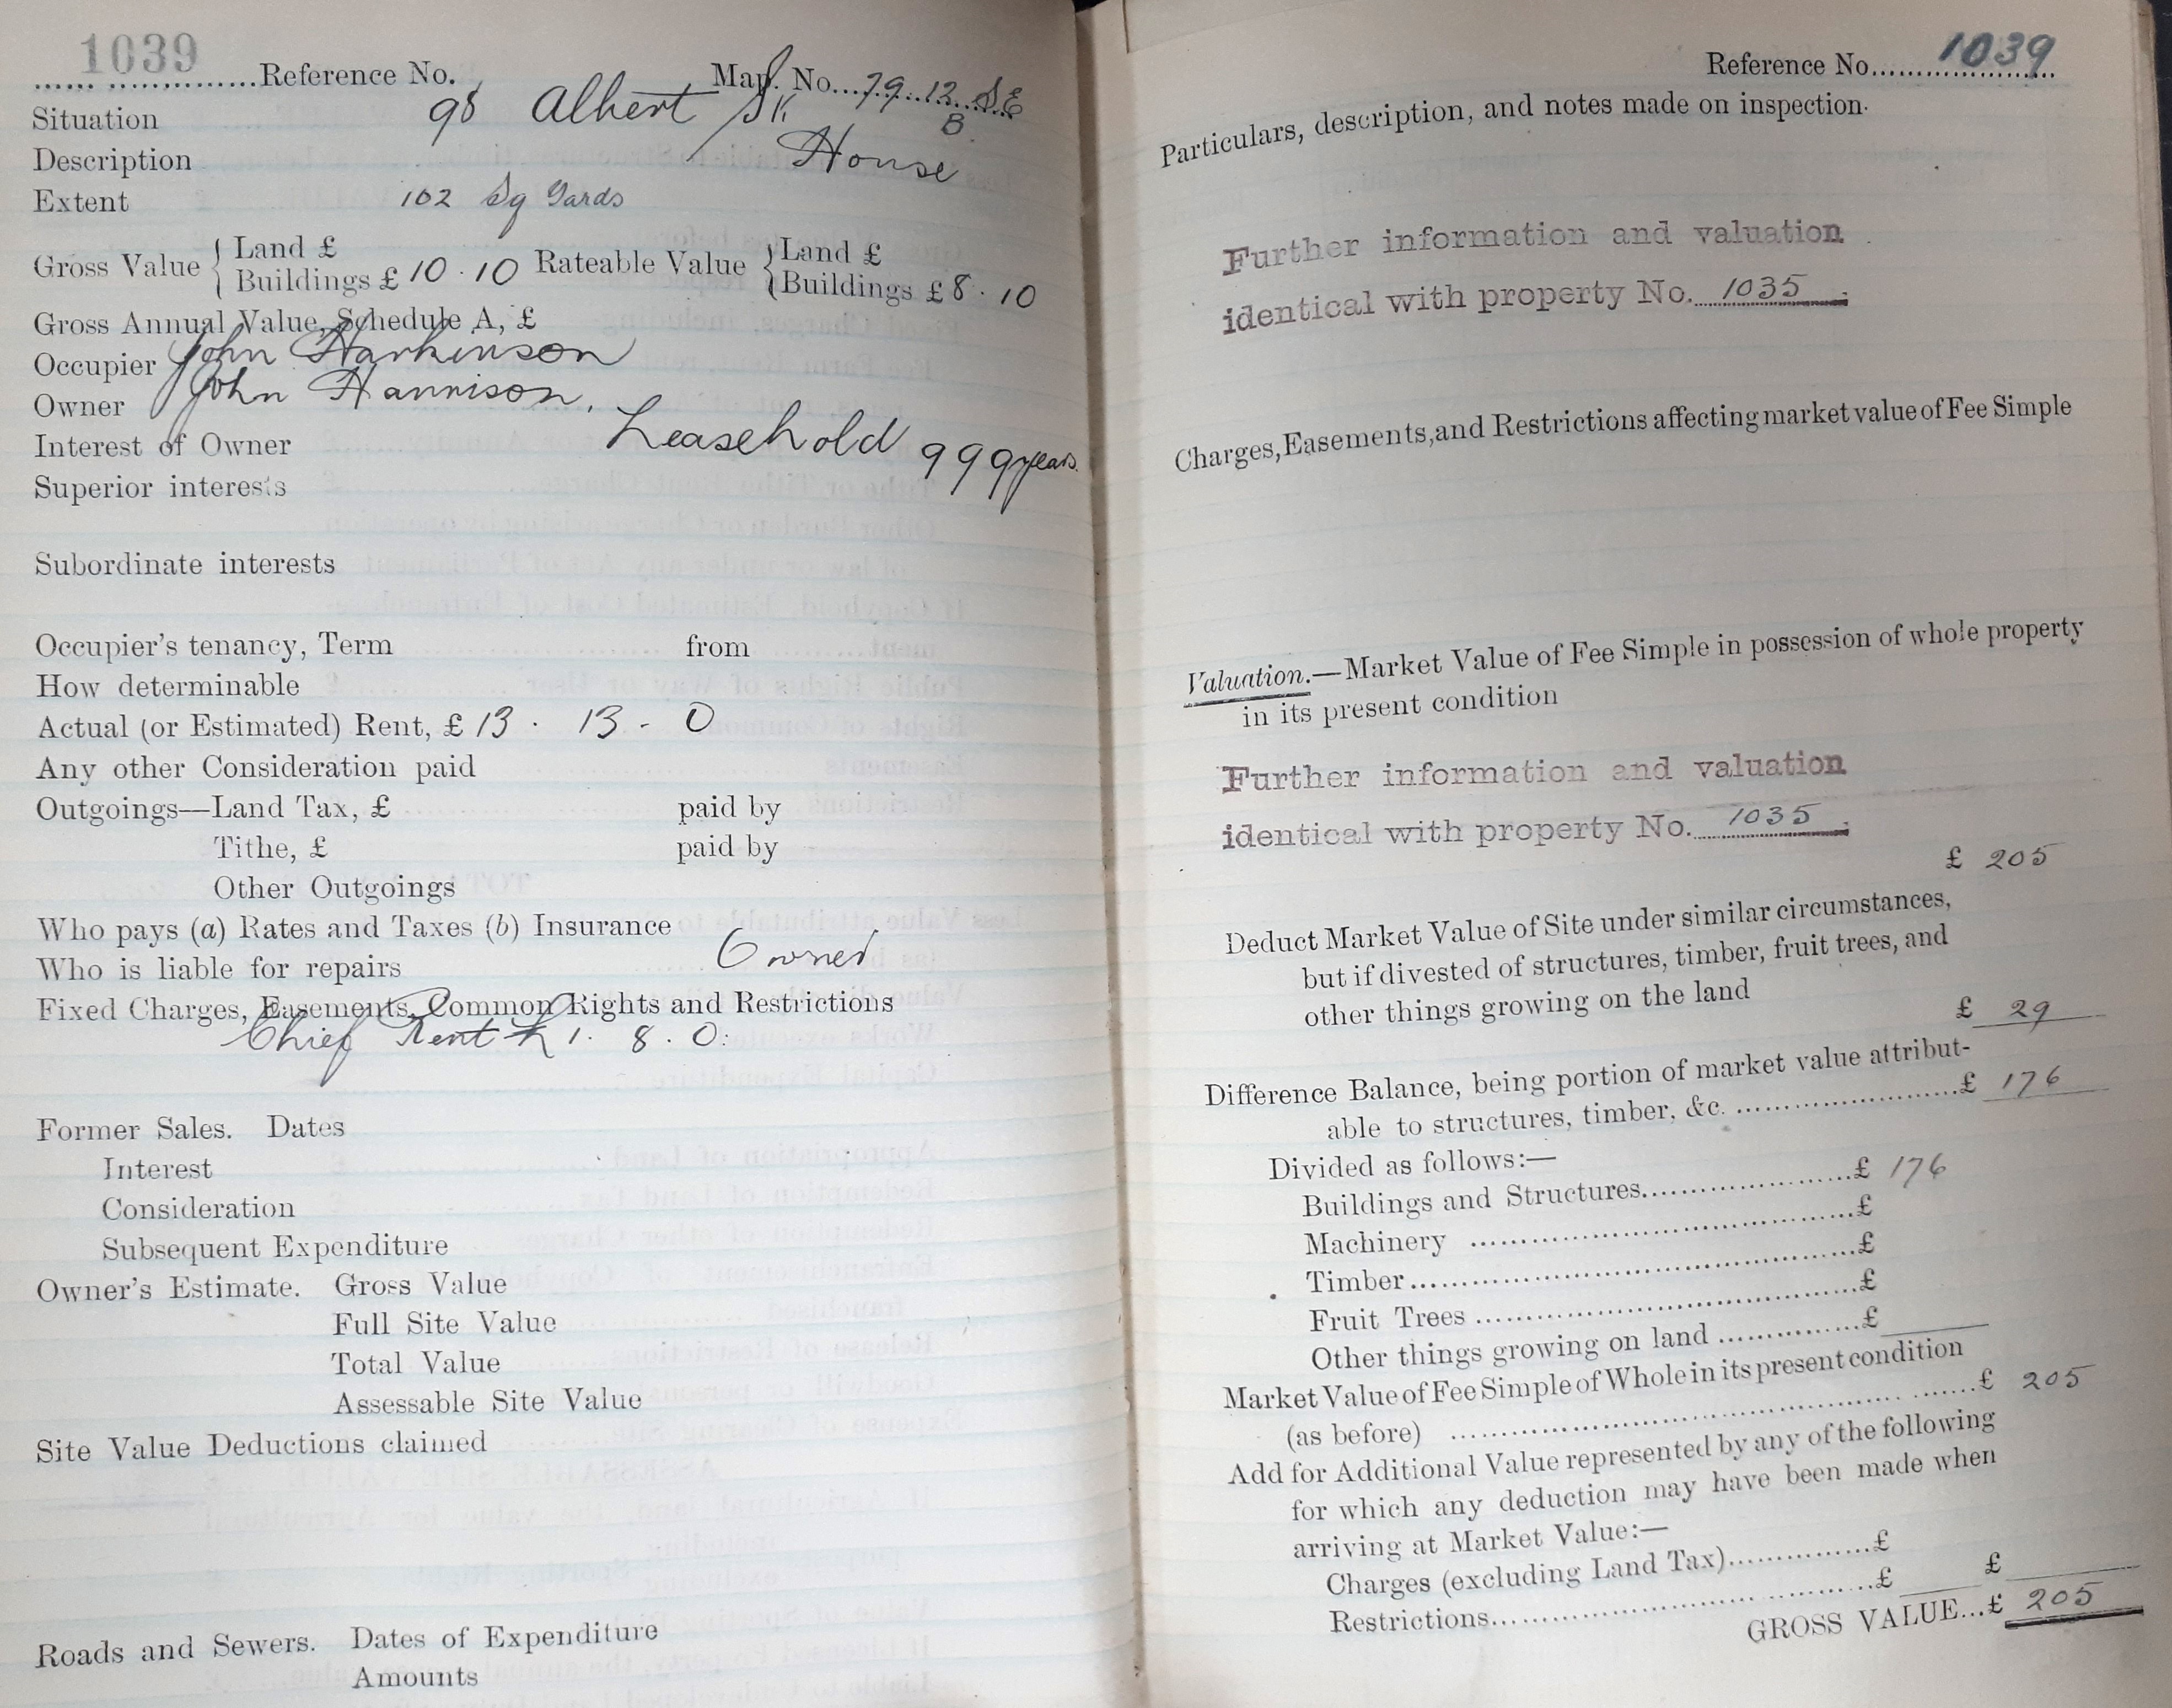 1039
Reference No. Map. No. 79.12.SE
B
Situation 98 Albert St.
Description House
Extent 102 Sq Yards
Gross Value { Land £ Rateable Value { Land £
Buildings £ 10 . 10 Buildings £ 8 . 10
Gross Annual Value, Schedule A, £
Occupier John Harkinson
Owner John Harrison.
Interest of Owner Leasehold 999 years.
Superior interests
Subordinate interests
Occupier's tenancy, Term from
How determinable
Actual (or Estimated) Rent, £ 13 . 13 - 0
Any other Consideration paid
Outgoings—Land Tax, £ paid by
Tithe, £ paid by
Other Outgoings
Who pays (a) Rates and Taxes (b) Insurance
Who is liable for repairs Owner
Fixed Charges, Easements, Common Rights and Restrictions
Chief Rent £ 1. 8. 0.
Former Sales. Dates
Interest
Consideration
Subsequent Expenditure
Owner's Estimate. Gross Value
Full Site Value
Total Value
Assessable Site Value
Site Value Deductions claimed
Roads and Sewers. Dates of Expenditure
Amounts
Reference No. 1039
Particulars, description, and notes made on inspection.
Further information and valuation
identical with property No. 1035.
Charges, Easements, and Restrictions affecting market value of Fee Simple
Valuation.—Market Value of Fee Simple in possession of whole property
in its present condition
Further information and valuation
identical with property No. 1035.
£ 205
Deduct Market Value of Site under similar circumstances,
but if divested of structures, timber, fruit trees, and
other things growing on the land
£ 29
Difference Balance, being portion of market value attribut-
able to structures, timber, &c. £ 176
Divided as follows:—
Buildings and Structures £ 176
Machinery £
Timber £
Fruit Trees £
Other things growing on land £
Market Value of Fee Simple of Whole in its present condition
(as before) £ 205
Add for Additional Value represented by any of the following
for which any deduction may have been made when
arriving at Market Value:—
Charges (excluding Land Tax) £
Restrictions £ £
GROSS VALUE...£ 205